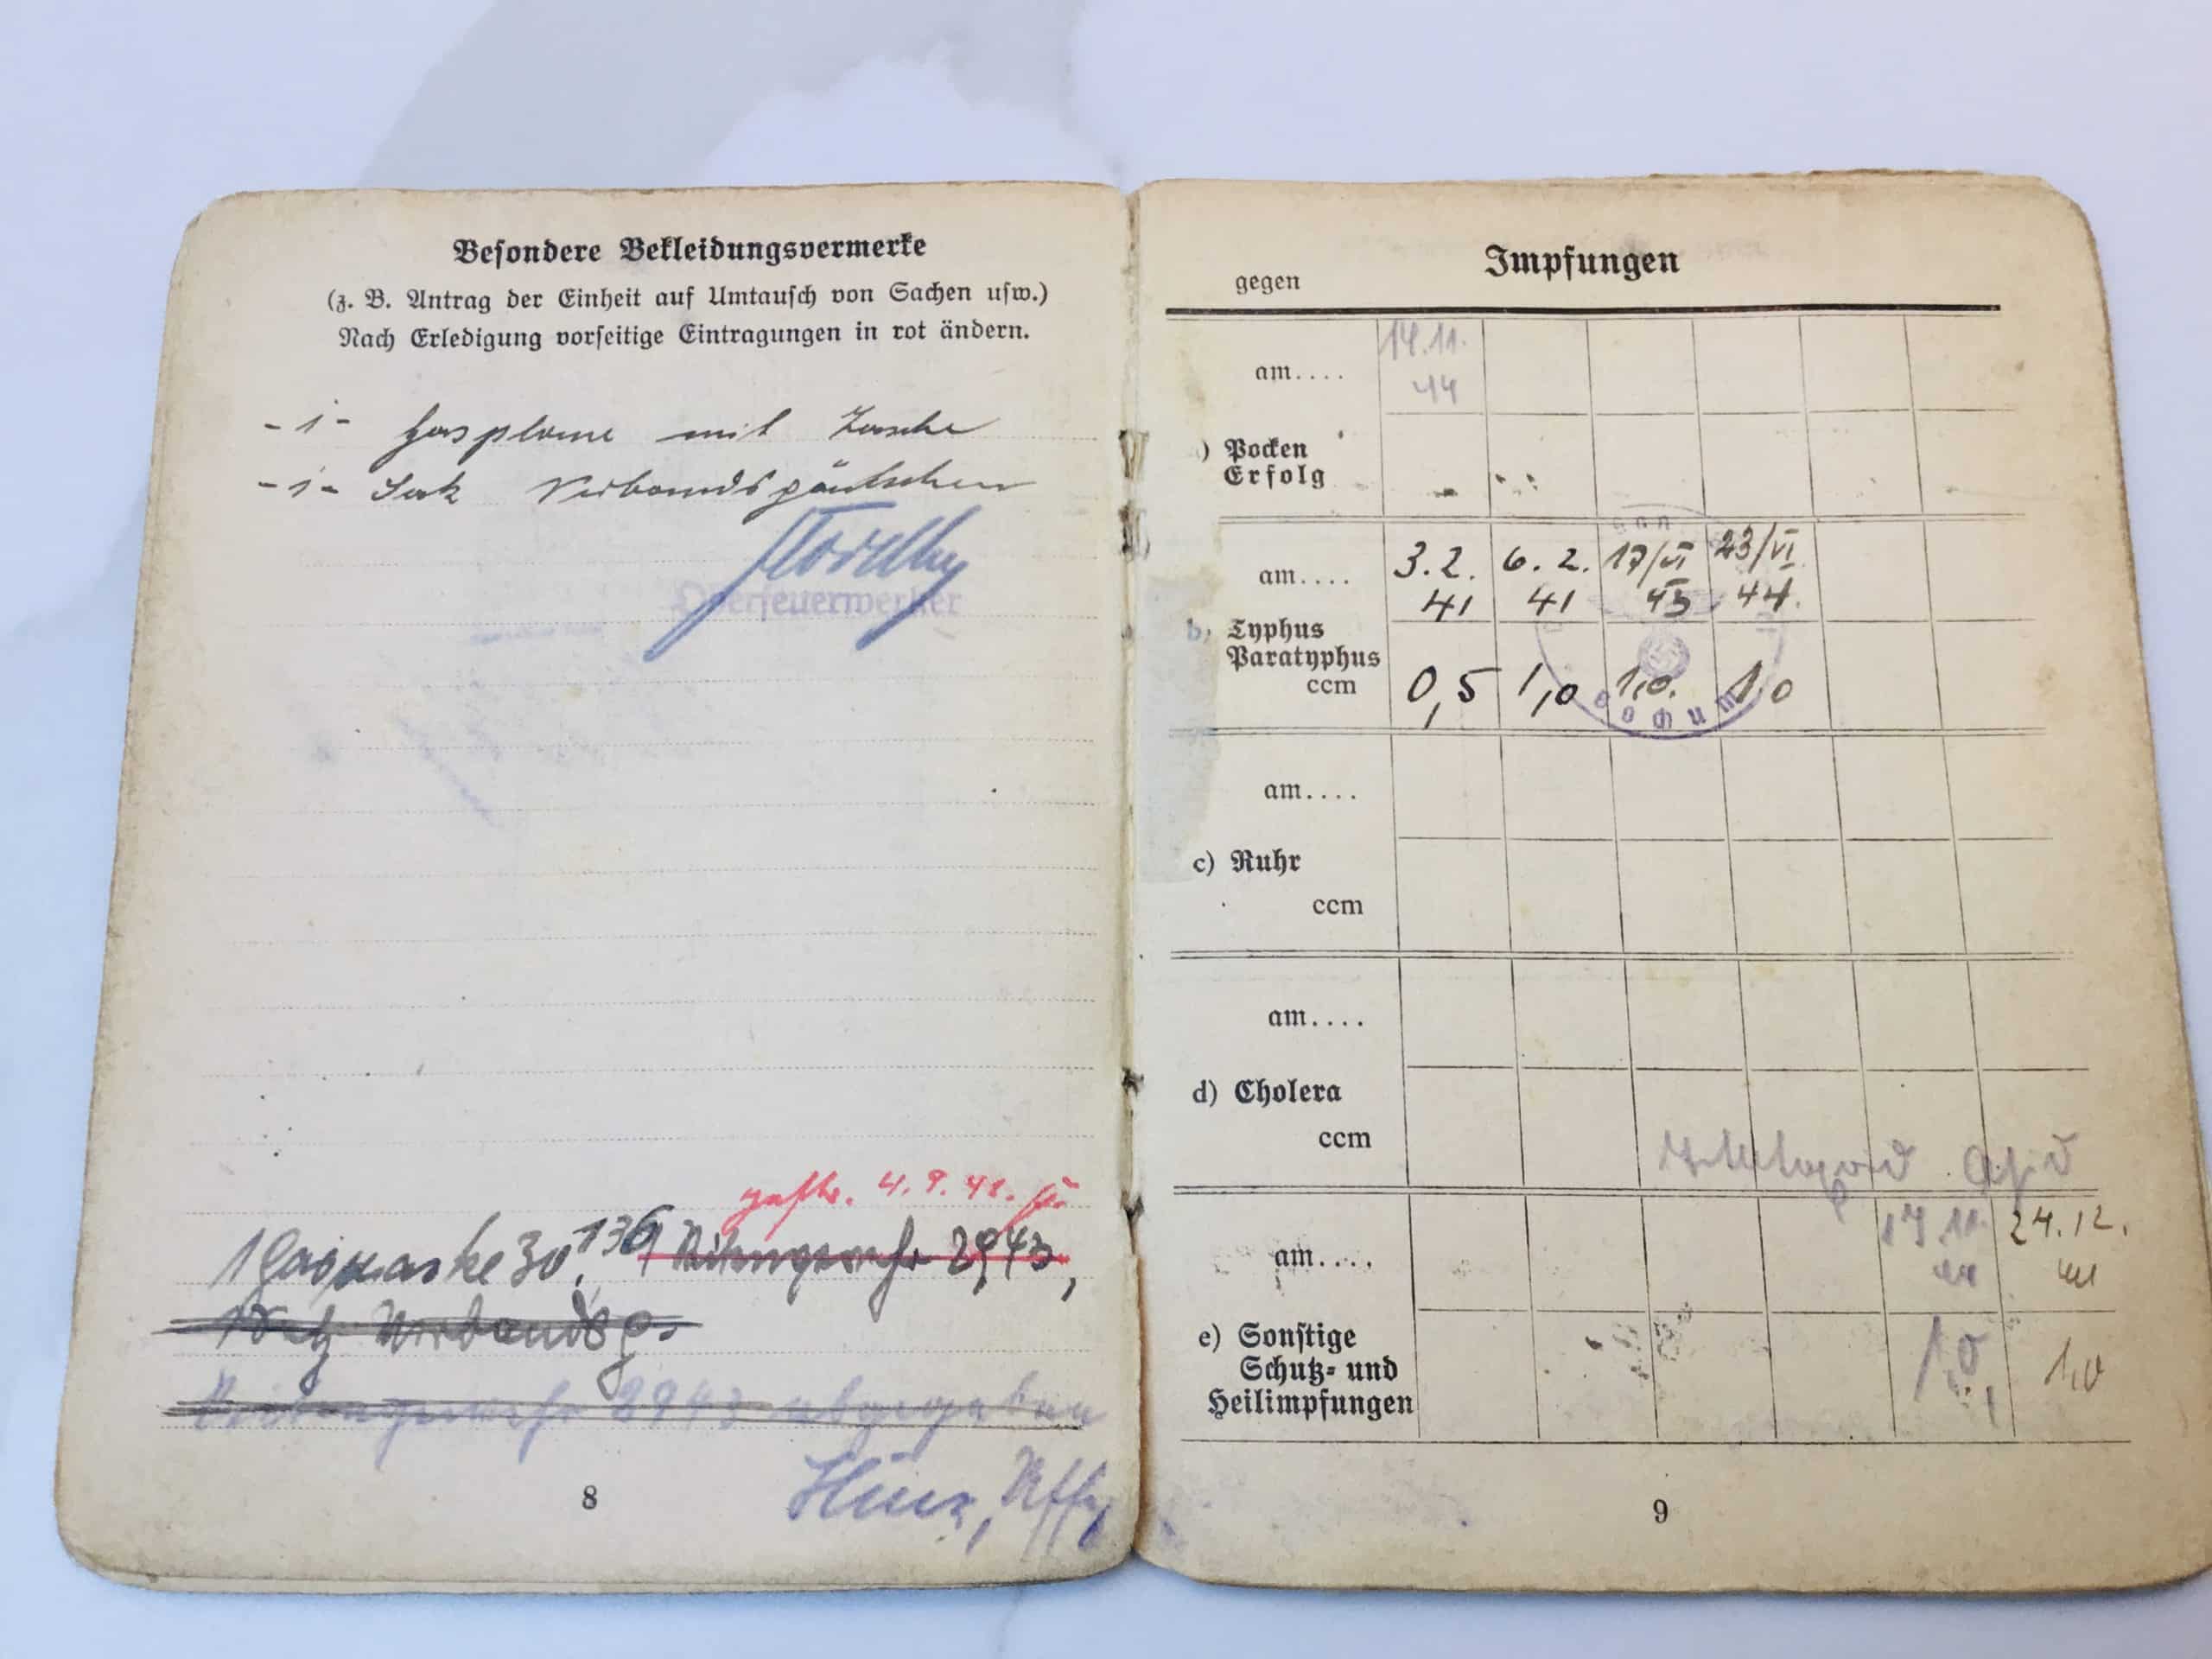 Besondere Bekleidungsvermerke
(z. B. Antrag der Einheit auf Umtausch von Sachen usw.)
Nach Erledigung vorseitige Eintragungen in rot ändern.
-1- Gasplane mit Tasche
-1- Verbandspäckchen
Oberfeuerwerker
4. 9. 41.
1 Gasmaske 30, 136 1 2943,
Verbandsp.
2943 abgegeben
Uffz
8
Impfungen
gegen
14.11.
44
am....
) Pocken
Erfolg
3.2. 6.2. 17/VI 23/VI
am....
41 41 43 44.
b) Typhus
Paratyphus
ccm
0,5 1,0 1,0. 1,0
Bochum
am....
c) Ruhr
ccm
am....
d) Cholera
ccm
24.12.
am....
44
e) Sonstige
Schutz- und
Heilimpfungen
1,0 1,0
9